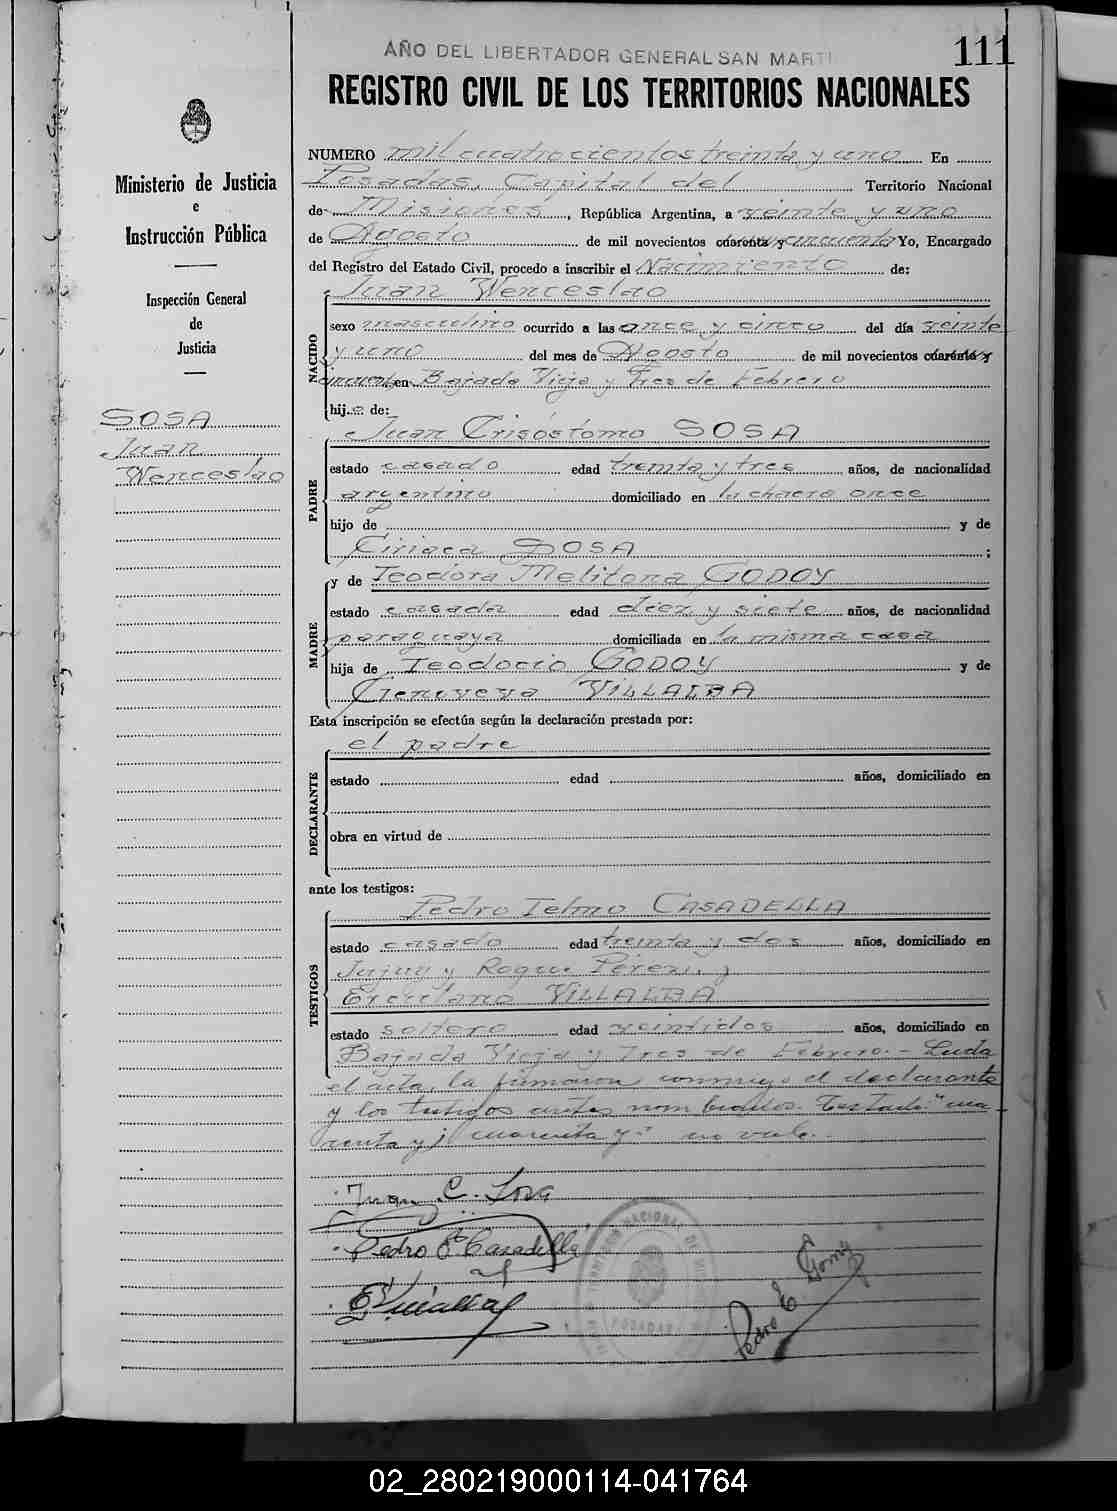 AÑO DEL LIBERTADOR GENERAL SAN MARTI
111
REGISTRO CIVIL DE LOS TERRITORIOS NACIONALES
Ministerio de Justicia
e
Instrucción Pública
Inspección General
de
Justicia
SOSA
Juan
Wenceslao
NUMERO mil cuatrocientos treinta y uno En
Posadas, Capital del Territorio Nacional
de Misiones, República Argentina, a veinte y uno
de Agosto de mil novecientos cuarenta y cincuenta Yo, Encargado
del Registro del Estado Civil, procedo a inscribir el Nacimiento de:
NACIDO
Juan Wenceslao
sexo masculino ocurrido a las once y cinco del día veinte
y uno del mes de Agosto de mil novecientos cuarenta y
cincuenta en Bajada Vieja y Tres de Febrero
hijo de:
PADRE
Juan Crisóstomo SOSA
estado casado edad treinta y tres años, de nacionalidad
argentino domiciliado en la chacra once
hijo de y de
Ciriaca SOSA ;
MADRE
y de Teodora Melitona GODOY
estado casada edad diez y siete años, de nacionalidad
paraguaya domiciliada en la misma casa
hija de Teodocio GODOY y de
Genoveva VILLALBA
Esta inscripción se efectúa según la declaración prestada por:
el padre
DECLARANTE
estado edad años, domiciliado en
obra en virtud de
ante los testigos:
TESTIGOS
Pedro Telmo CASADELLA
estado casado edad treinta y dos años, domiciliado en
Jujuy y Roque Pérez, y
Erculano VILLALBA
estado soltero edad veintidos años, domiciliado en
Bajada Vieja y Tres de Febrero.- Leida
el acta, la firmaron conmigo el declarante
y los testigos antes nombrados. Testado: "cua-
renta y" cuarenta y" no vale.
Juan C. Sosa
Pedro T. Casadella
E. Villalba
Pedro E. Gomez
POSADAS
02_280219000114-041764